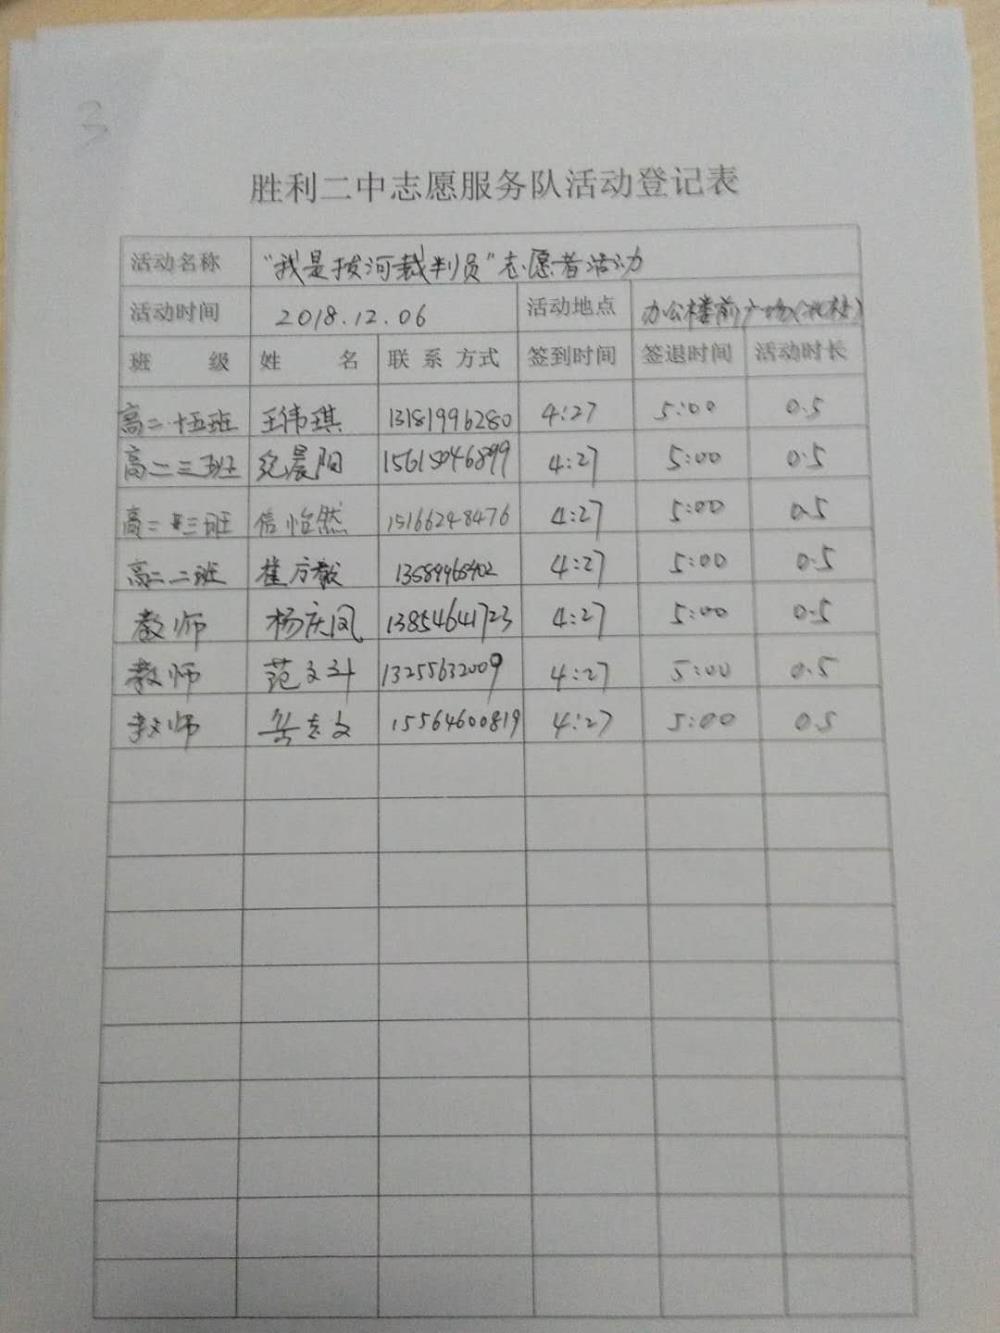 3
胜利二中志愿服务队活动登记表
活动名称 "我是拔河裁判员"志愿者活动
活动时间 2018.12.06 活动地点 办公楼前广场
班 级 姓 名 联系方式 签到时间 签退时间 活动时长
高二十五班 王伟琪 13181996280 4:27 5:00 0.5
高二三班 纪晨阳 15615046899 4:27 5:00 0.5
高二 三班 信怡然 15166248476 4:27 5:00 0.5
高二二班 崔方 4:27 5:00 0.5
教师 杨庆凤 13854641723 4:27 5:00 0.5
教师 范文斗 13255632009 4:27 5:00 0.5
教师 岳志文 15564600819 4:27 5:00 0.5